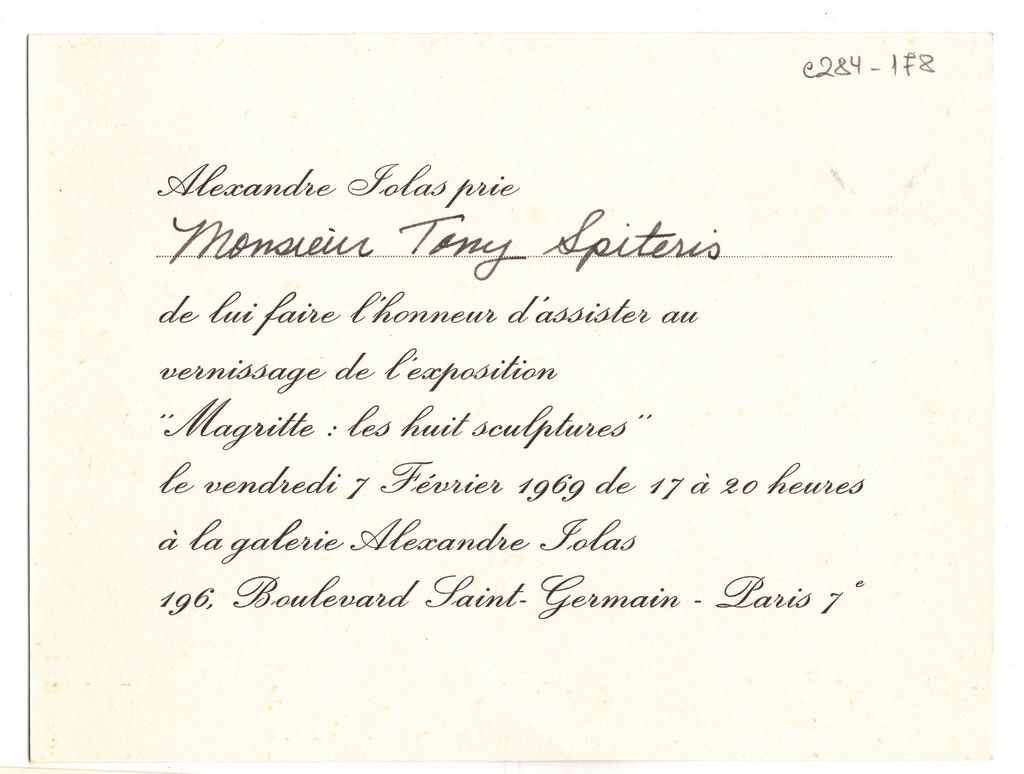 e284-178
Alexandre Iolas prie
Monsieur Tony Spiteris
de lui faire l'honneur d'assister au
vernissage de l'exposition
"Magritte : les huit sculptures"
le vendredi 7 Février 1969 de 17 à 20 heures
à la galerie Alexandre Iolas
196, Boulevard Saint-Germain - Paris 7e